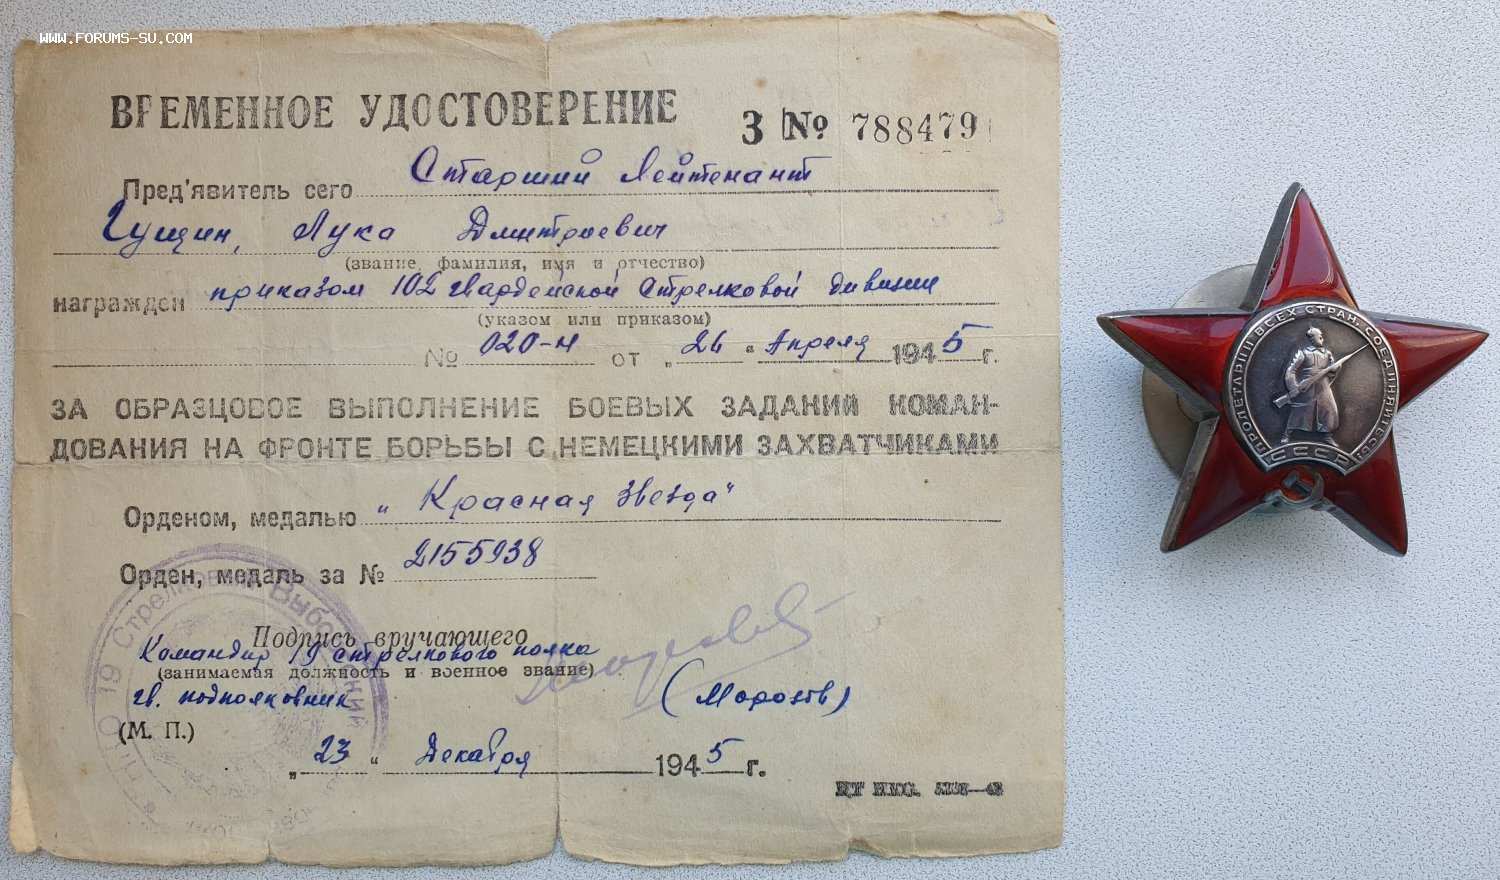 WWW.FORUMS-SU.COM
ВРЕМЕННОЕ УДОСТОВЕРЕНИЕ
З № 788479
Пред'явитель сего Старший Лейтенант
Гущин, Лука Дмитриевич
(звание, фамилия, имя и отчество)
награжден приказом 102 Гвардейской Стрелковой дивизии
(указом или приказом)
№ 020-н от „26" Апреля 1945 г.
ЗА ОБРАЗЦОВОЕ ВЫПОЛНЕНИЕ БОЕВЫХ ЗАДАНИЙ КОМАН-
ДОВАНИЯ НА ФРОНТЕ БОРЬБЫ С НЕМЕЦКИМИ ЗАХВАТЧИКАМИ
Орденом, медалью „Красная Звезда"
Орден, медаль за № 2155938
Подпись вручающего
Командир 19 стрелкового полка
(занимаемая должность и военное звание)
гв. подполковник (Морозов)
(М. П.)
„23" Декабря 1945 г.
НКО 19 Стрелковый Выборгский
ПРОЛЕТАРИИ ВСЕХ СТРАН, СОЕДИНЯЙТЕСЬ!
СССР